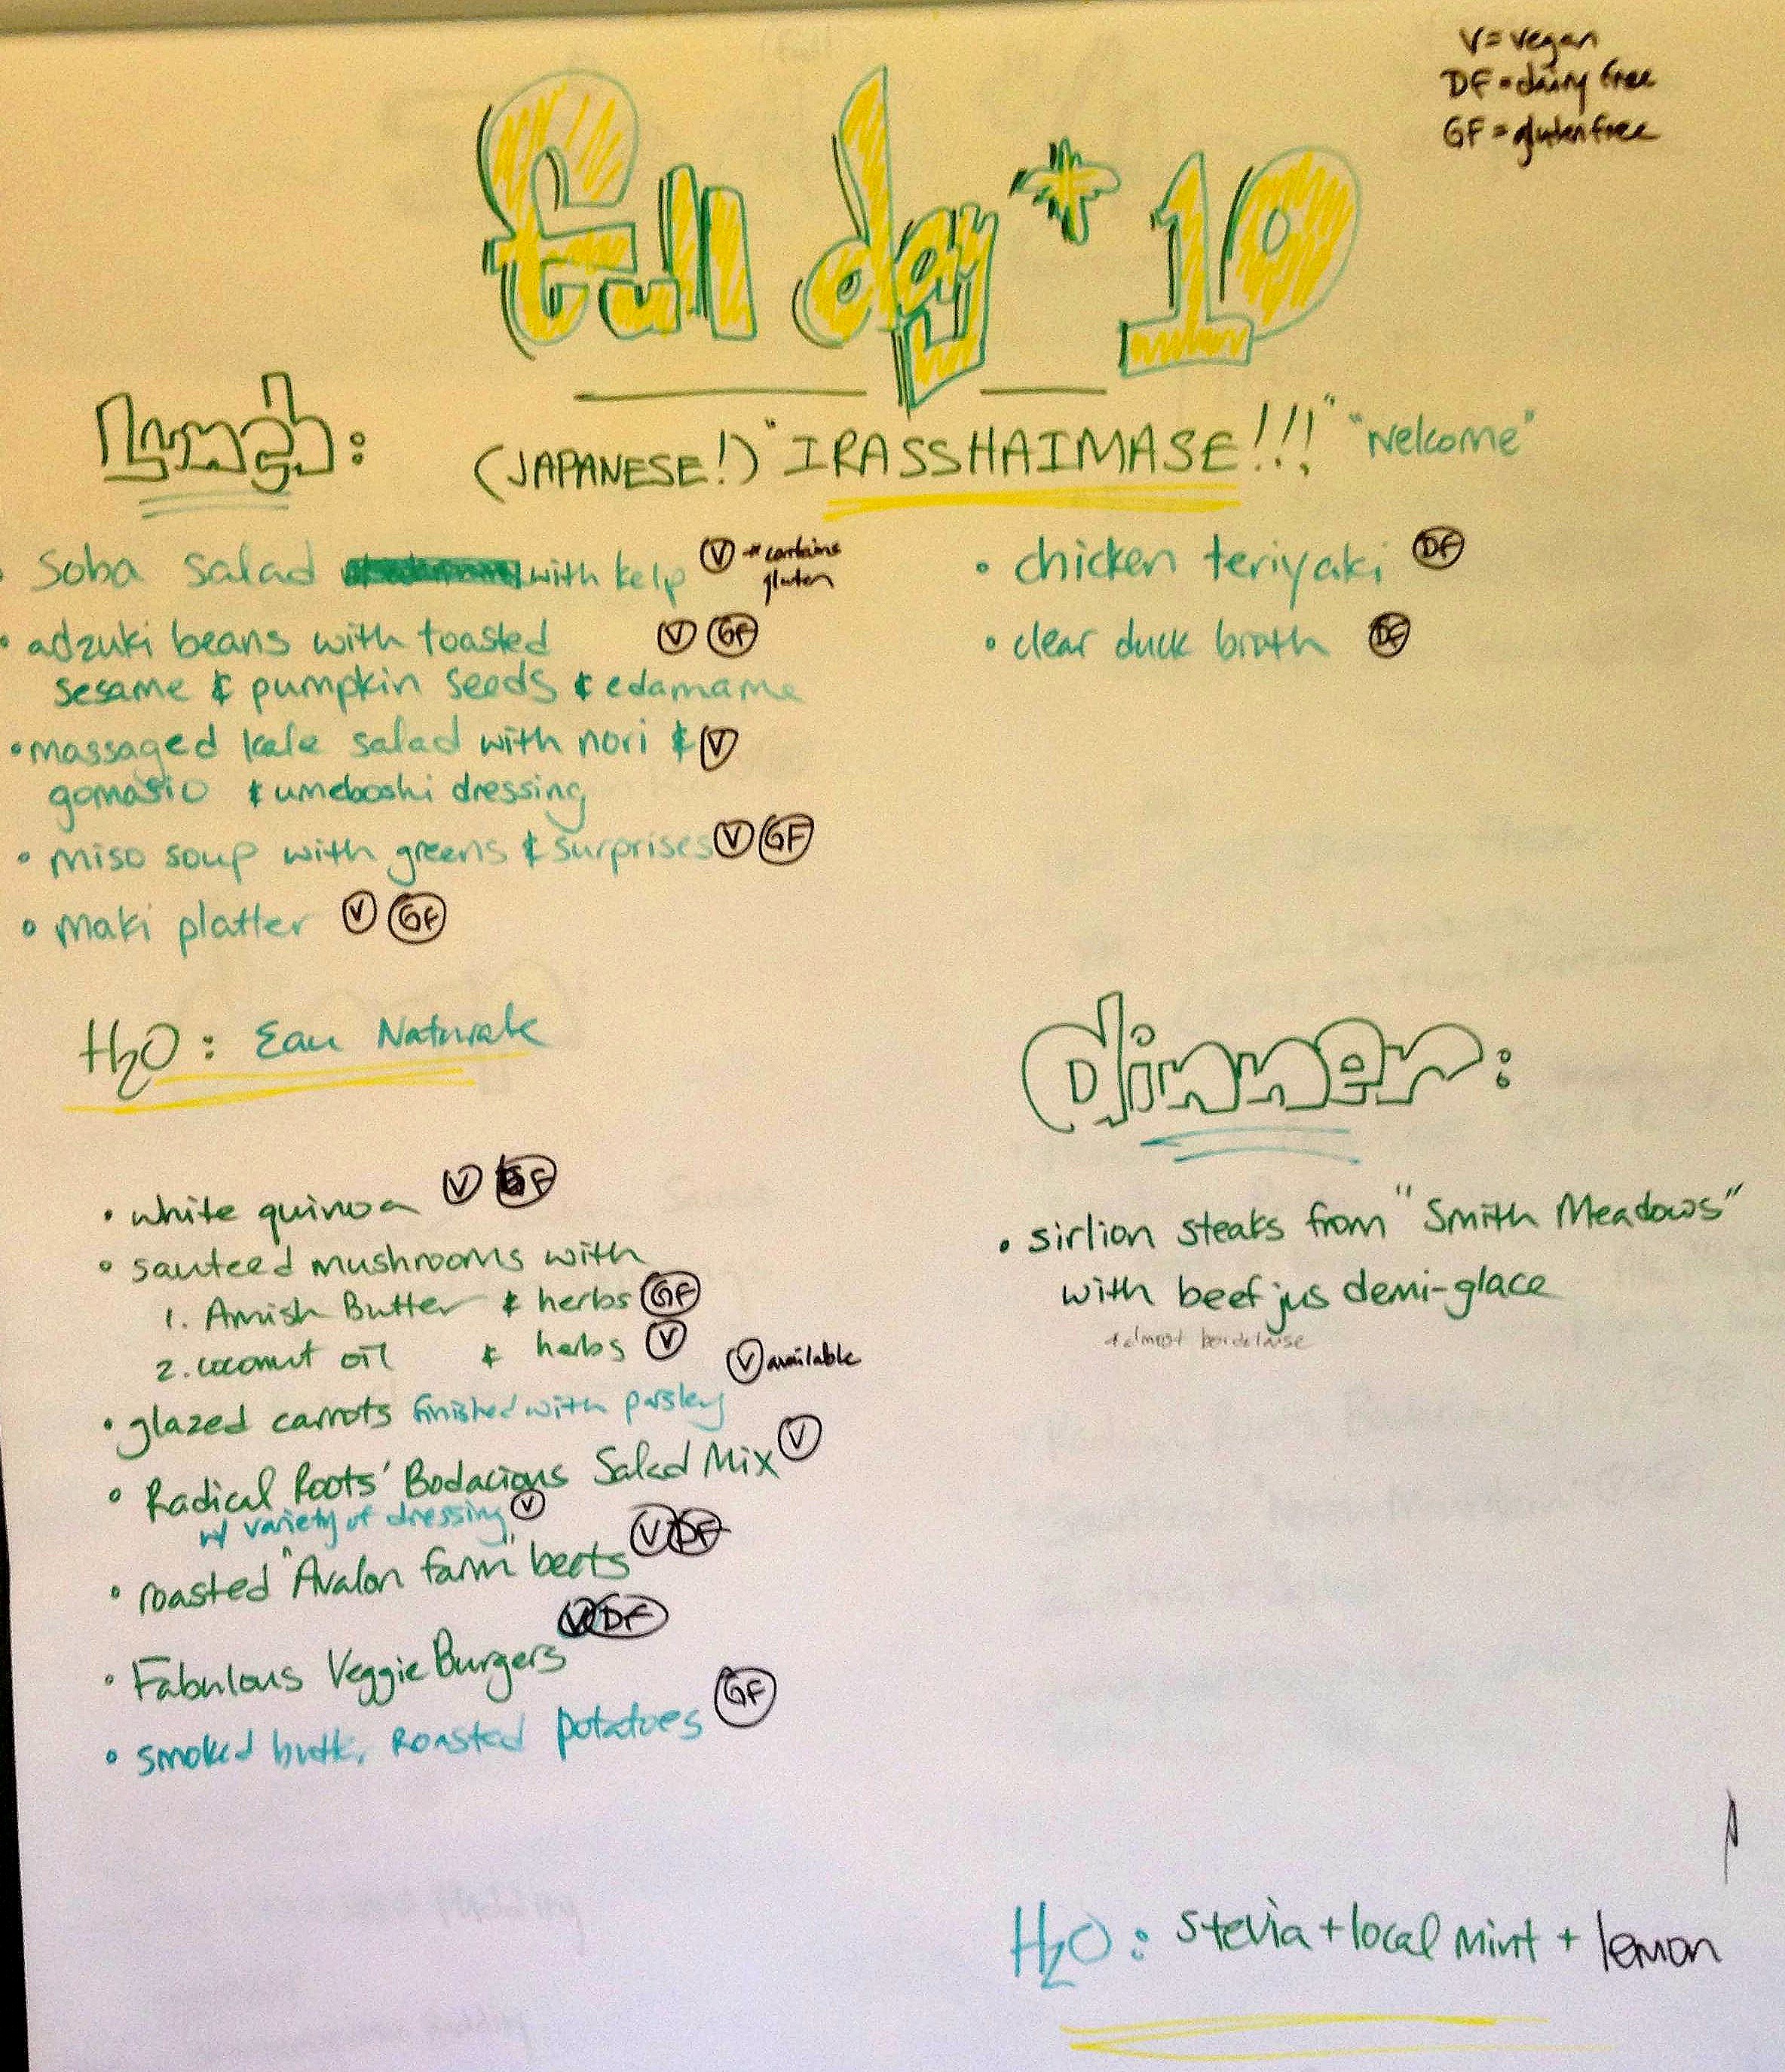 V = vegan
DF = dairy free
GF = gluten free
full day * 10
lunch:
(JAPANESE!) "IRASSHAIMASE!!!" "Welcome"
soba salad with kelp V * contains
gluten
• adzuki beans with toasted V GF
sesame & pumpkin seeds & edamame
• massaged kale salad with nori & V
gomasio & umeboshi dressing
• miso soup with greens & surprises V GF
• maki platter V GF
• chicken teriyaki DF
• clear duck broth DF
H2O: Eau Naturale
• white quinoa V GF
• sauteed mushrooms with
1. Amish Butter & herbs GF
2. coconut oil & herbs V
V available
• glazed carrots finished with parsley
• Radical Roots' Bodacious Salad Mix V
w/ variety of dressing V
• roasted "Avalon farm" beets V DF
• Fabulous Veggie Burgers V DF
• smoked roasted potatoes GF
dinner:
• sirlion steaks from "Smith Meadows"
with beef jus demi-glace
*almost
H2O: stevia + local mint + lemon